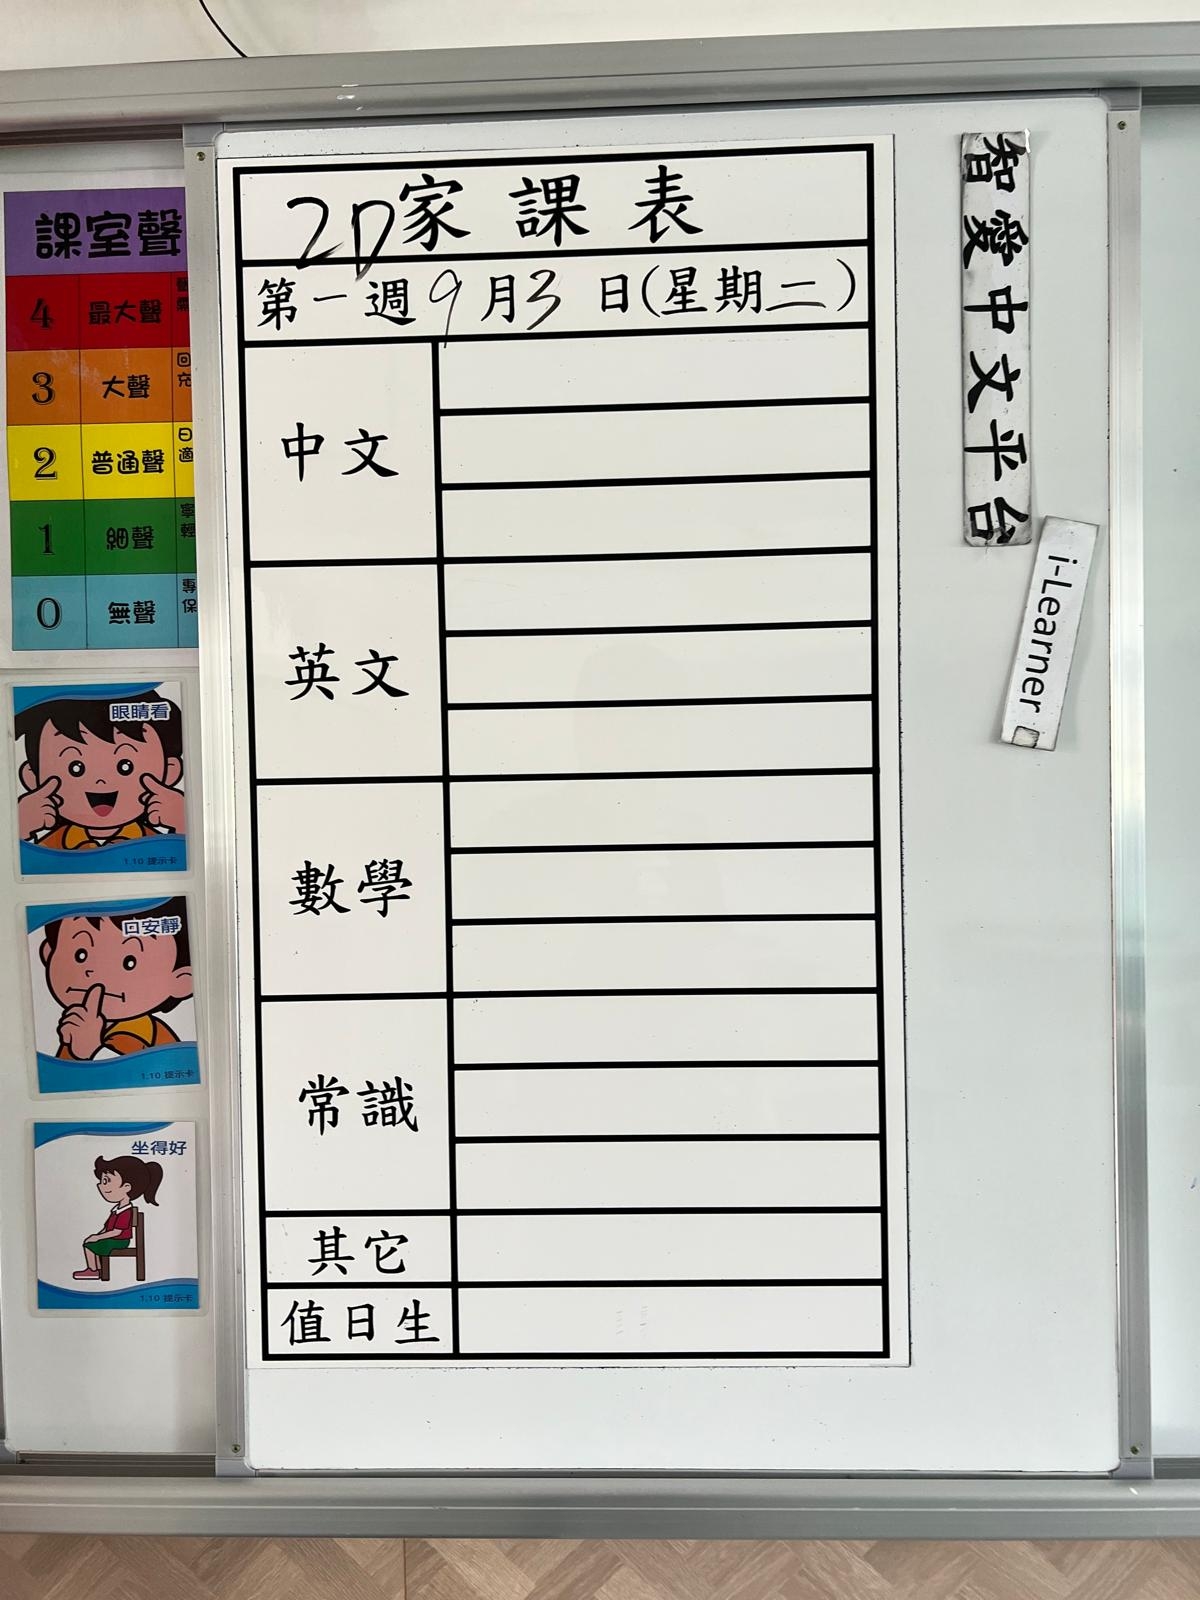 課室聲
4 最大聲
3 大聲
2 普通聲
1 細聲
0 無聲
眼睛看
1.10 提示卡
口安靜
1.10 提示卡
坐得好
1.10 提示卡
2D家課表
第一週9月3日(星期二)
中文
英文
數學
常識
其它
值日生
智愛中文平台
i-Learner